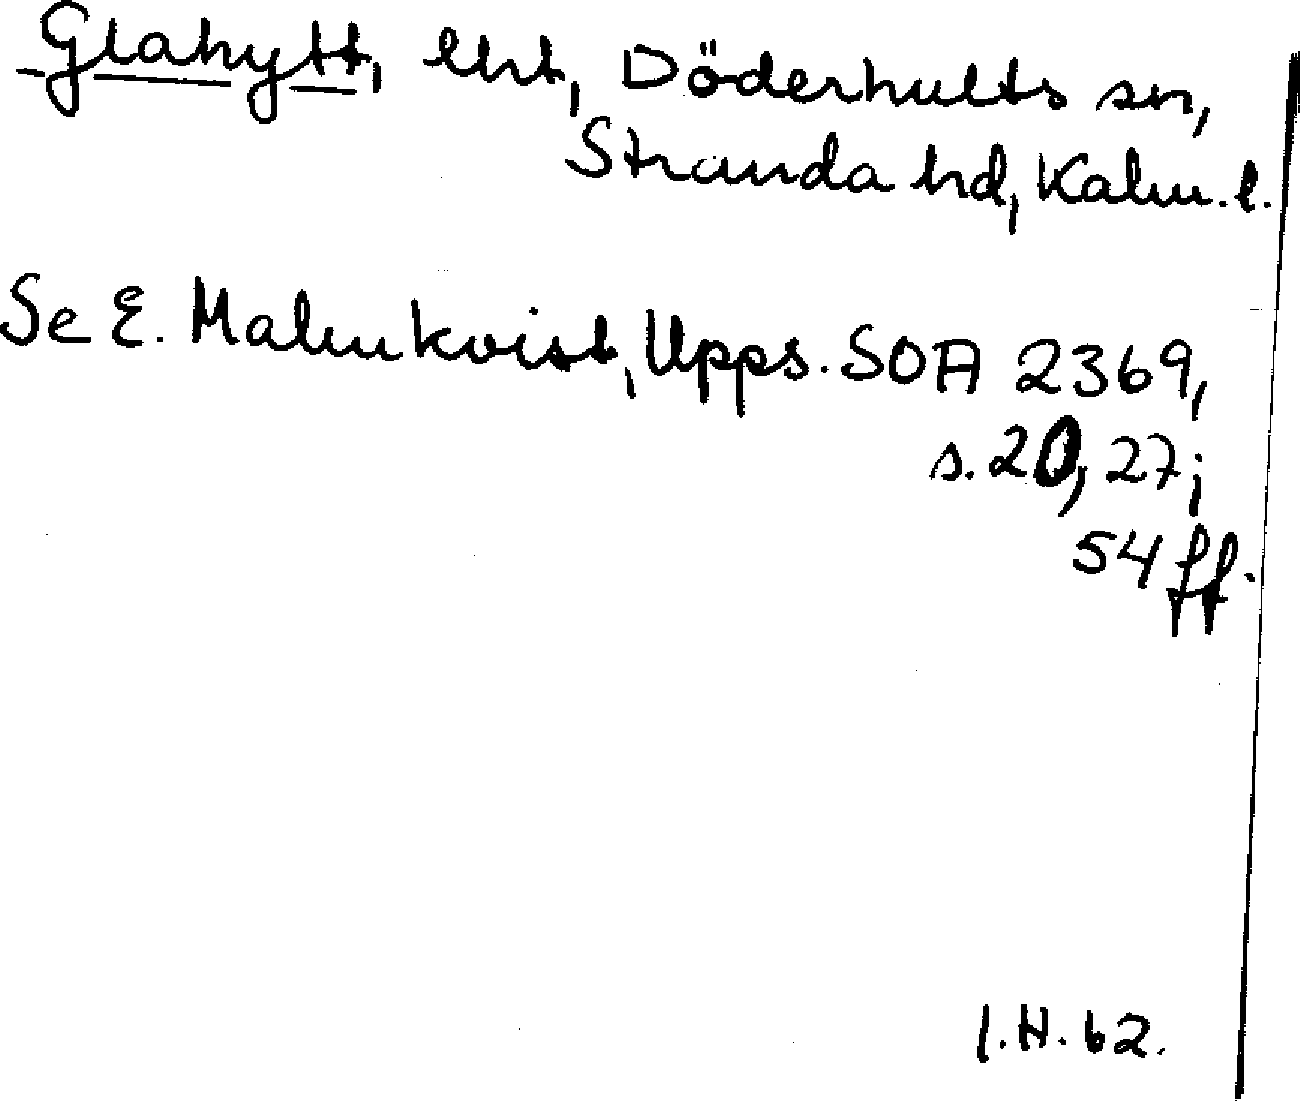 Glahytt, lht, Döderhults sn,
Stranda hd, Kalm. l.
Se E. Malmkvist, Upps. SOA 2369,
s. 20, 27;
54 ff.
I.H. 62.